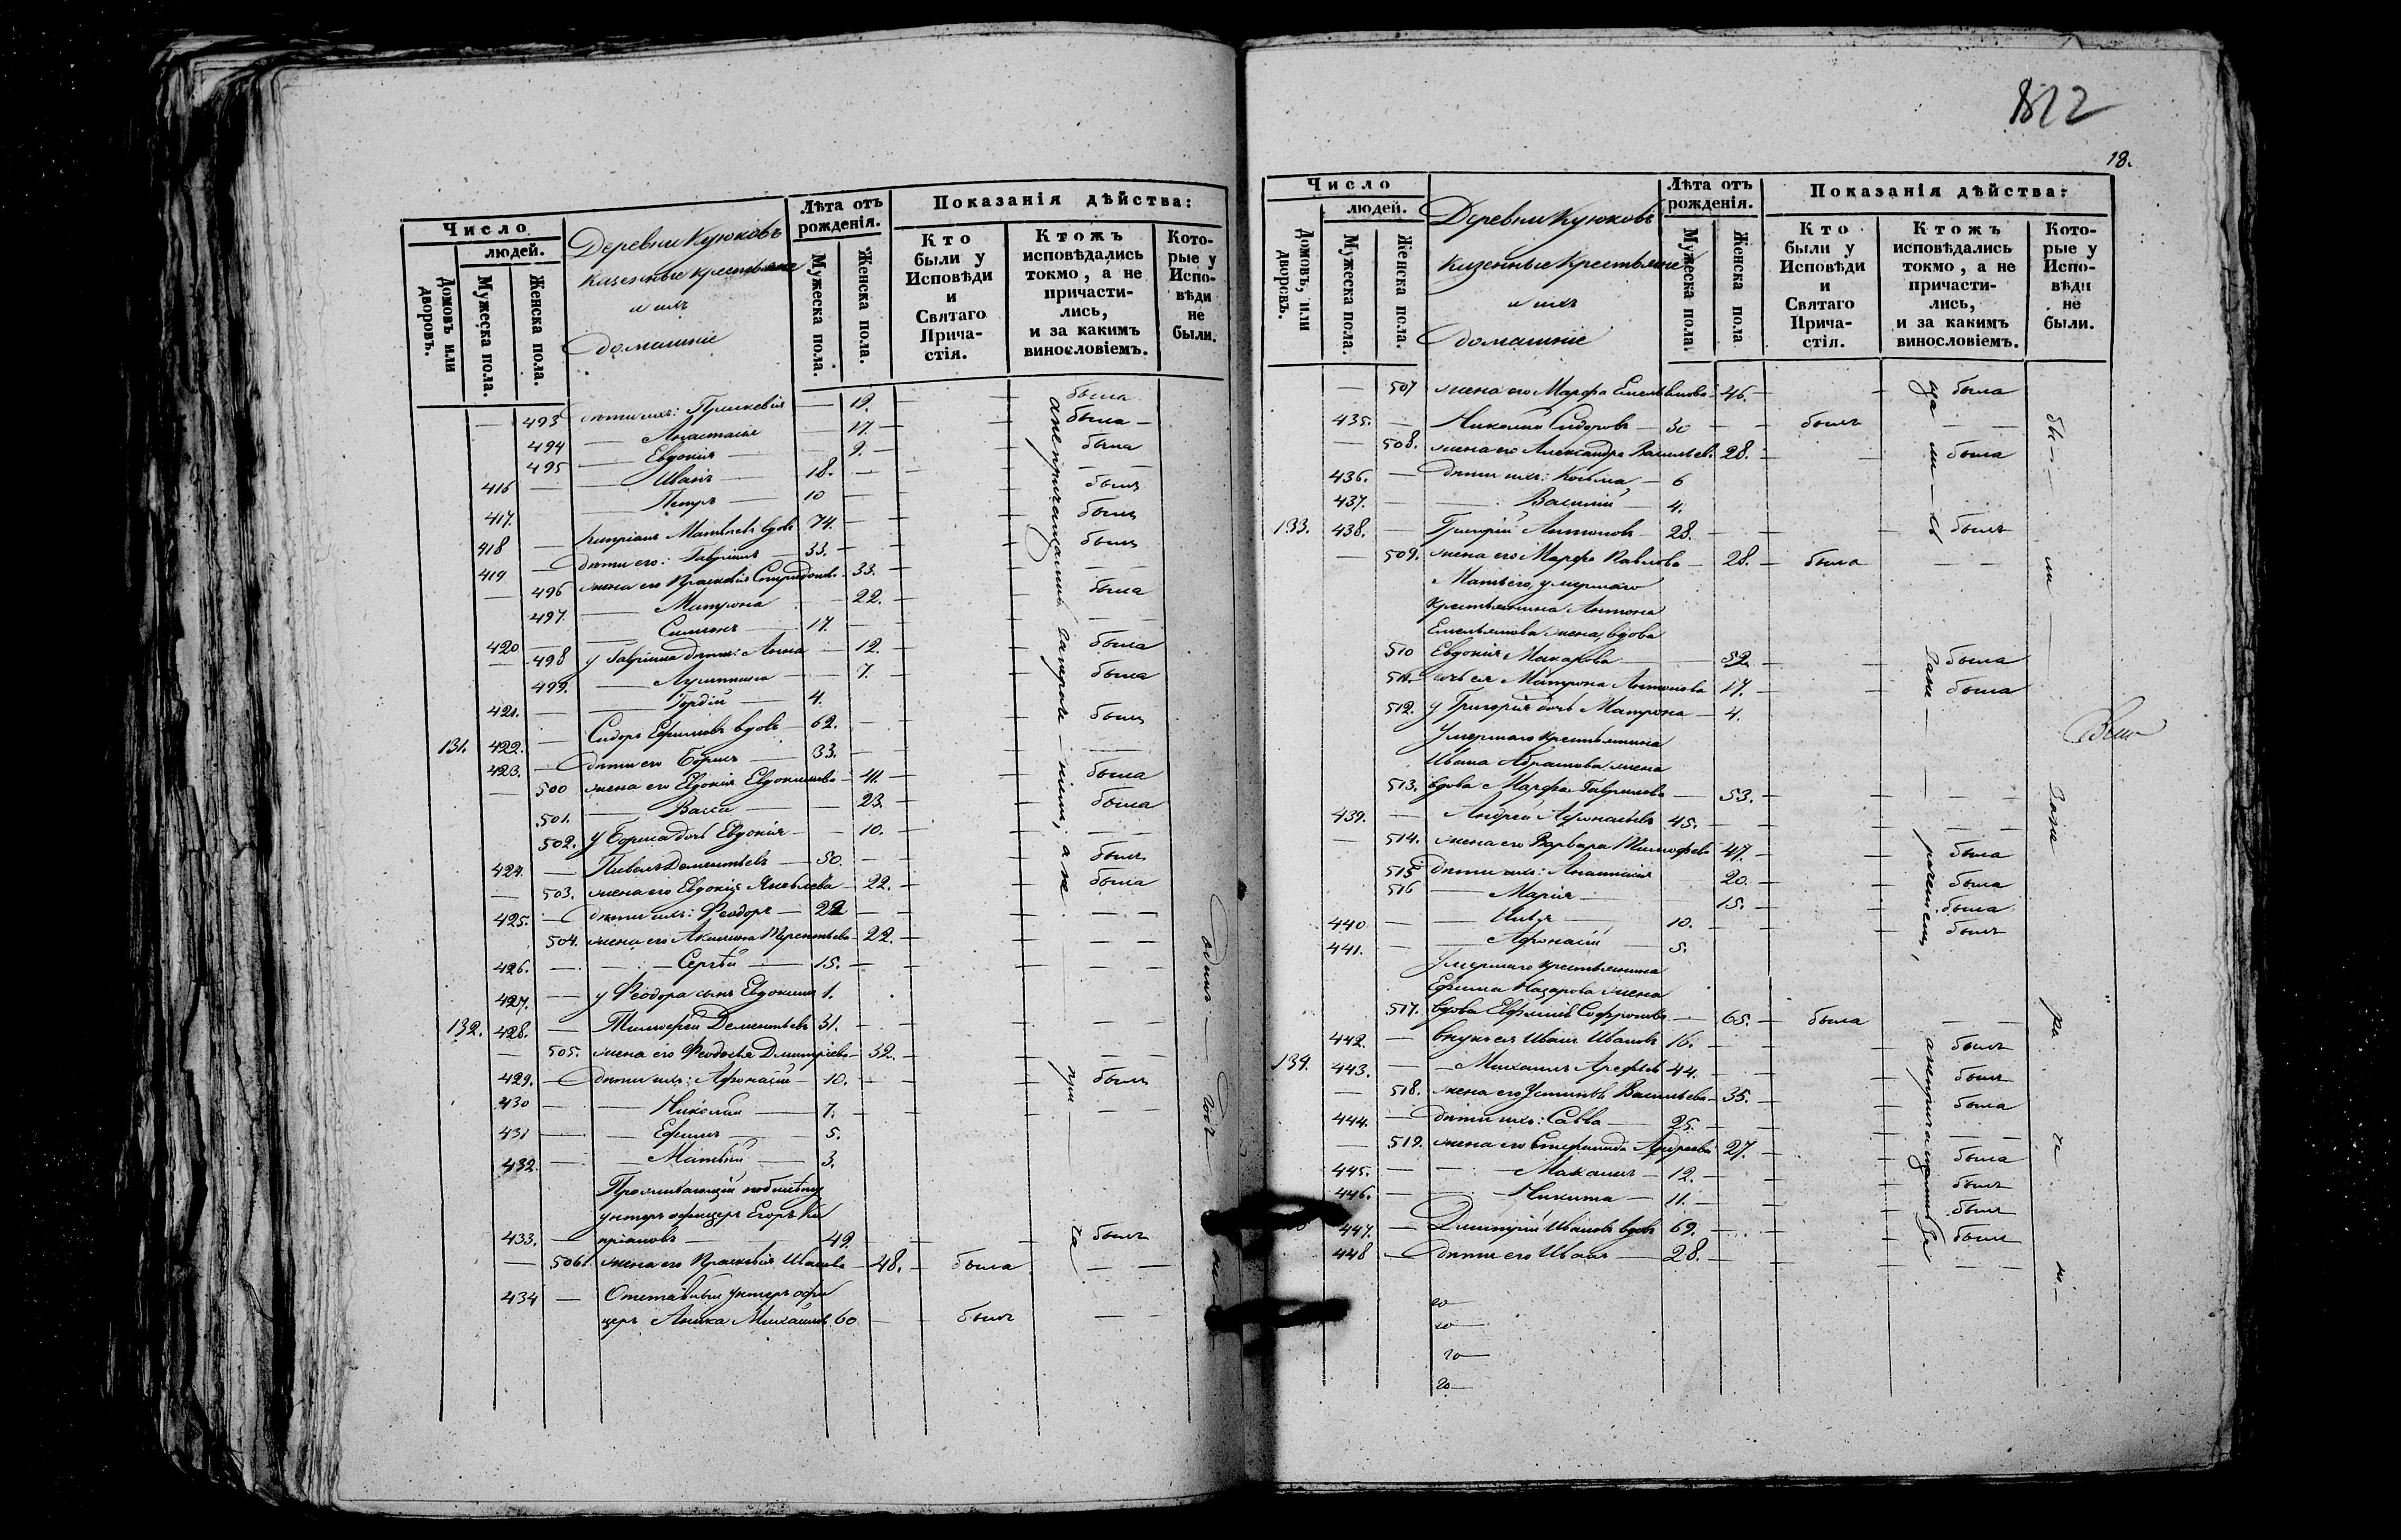 Число
людей.
Домовъ или дворовъ.
Мужеска пола.
Женска пола.
Деревни Куюковъ
казенные крестьяне
и ихъ
домашніе
Лѣта отъ рожденія.
Мужеска пола.
Женска пола.
Показанія дѣйства:
Кто были у Исповѣди и Святаго Прича-стія.
Ктожъ исповѣдались токмо, а не причасти-лись, и за какимъ винословіемъ.
Кото-рые у Испо-вѣди не были.
— 493 дѣти ихъ: — 19. — была
494 — Анастасія — 17. — была —
495 — Евдокія — 9. — была
416 — Иванъ — 18. —
417. — Петръ — 10 — былъ
418 — Кипріанъ Матвѣевъ вдовъ 74. — былъ
419 — дѣти его: Гавріилъ — 33. — былъ
— 496 жена его Праскевія Спиридонова — 33. —
497. — Матрона — 22. — была
420 — Симеонъ — 17. —
— 498 у Гавріила дѣти: Анна — 12. — была
499. — — 7. — была
421. — Гордій — 4.
131. 422. — Сидоръ Ефимовъ вдовъ — 62. — былъ
423. — дѣти его Борисъ — 33. —
— 500 жена его Евдокія Евдокимова — 41. — была
501. — Васса — 23. — была
502. у Бориса дочь Евдокія — 10. —
424. — Дементьевъ — 50. — былъ
— 503. жена его Евдокія Яковлева — 22. — была
425. — дѣти ихъ: Феодоръ — 22 —
504. жена его Акилина Терентьева — 22. —
426. — Сергѣй — 15. —
427. — у Феодора сынъ Евдокимъ 1.
132. 428. — Тимофей Дементьевъ 31. —
— 505. жена его Феодосья Дмитріева — 32. —
429. — дѣти ихъ: Афонасій — 10. — былъ
430 — Николай — 7. —
431 — Ефимъ — 5.
432. — Матвѣй — 3.
Проживающій по билѣту
унтеръ офицеръ Егоръ Ки
433. — пріановъ — 49. — былъ
— 506. жена его Праскевія Иванова — 48. — была — —
434 — Отставный унтеръ офи
церъ Аника Михайловъ 60 — былъ —
а не причащались
одинъ годъ
812
18.
Число
людей.
Домовъ, или дворовъ.
Мужеска пола.
Женска пола.
Деревни Куюковъ
казенные крестьяне
и ихъ
домашніе
Лѣта отъ рожденія.
Мужеска пола.
Женска пола
Показанія дѣйства:
Кто были у Исповѣди и Святаго Прича-стія.
Ктожъ исповѣдались токмо, а не причасти-лись, и за какимъ винословіемъ.
Кото-рые у Испо-вѣди не были.
— 507 жена его Марфа Емельянова 46. — была
435. — Николай Сидоровъ — 30 — былъ — —
— 508. жена его Александра Васильев. 28. — была
436. — дѣти ихъ: Козьма — 6
437. — Василій — 4.
133. 438. — Григорій Антоновъ — 28. — былъ
— 509. жена его Марфа Павлова — 28. — была — —
Мать его, умершаго
крестьянина Антона
Емельянова жена, вдова
510 Евдокія Макарова — 52. — была
511. дочь ея Матрона Антонова 17. — была
512. у Григорія дочь Матрона — 4.
Умершаго крестьянина
Ивана Абрамова жена
513. вдова Марфа Гаврилова — 53. — — —
439. — Андрей Афонасьевъ 45. — — —
— 514. жена его Варвара Тимофеева 47. — была
515 дѣти ихъ: Анастасія 20. — была
516 — Марія — 15. — была
440 — Илья — 10. — былъ
441. — Афонасій — 5.
Умершаго крестьянина
Ефима Назарова жена
517. вдова Евфимія Софронова — 65. — была — —
442. — внукъ ея Иванъ Ивановъ 16. — былъ
134. 443. — Михаилъ Арефьевъ 44. — былъ
— 518. жена его Устинья Васильева — 35. — была
444. — дѣти ихъ: Савва — 25. — — —
— 519. жена его Стефанида Андреева 27. — была
445. — Максимъ — 12. — былъ
446. — Никита — 11. — былъ
447. — Дмитрій Ивановъ вдовъ 69. — былъ
448 — дѣти его Иванъ — 28. — — —